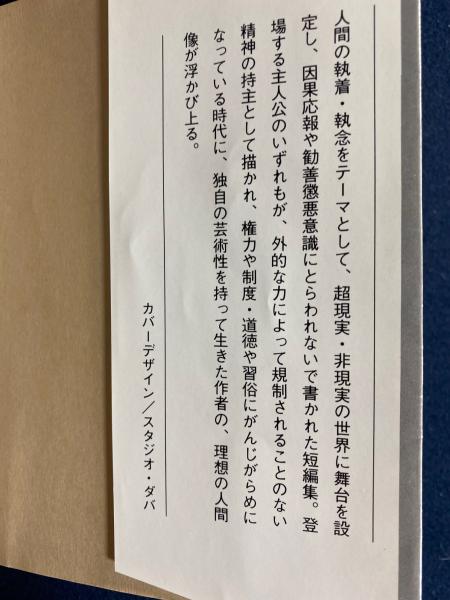 人間の執着・執念をテーマとして、超現実・非現実の世界に舞台を設
定し、因果応報や勧善懲悪意識にとらわれないで書かれた短編集。登
場する主人公のいずれもが、外的な力によって規制されることのない
精神の持主として描かれ、権力や制度・道徳や習俗にがんじがらめに
なっている時代に、独自の芸術性を持って生きた作者の、理想の人間
像が浮かび上る。
カバーデザイン／スタジオ・ダバ